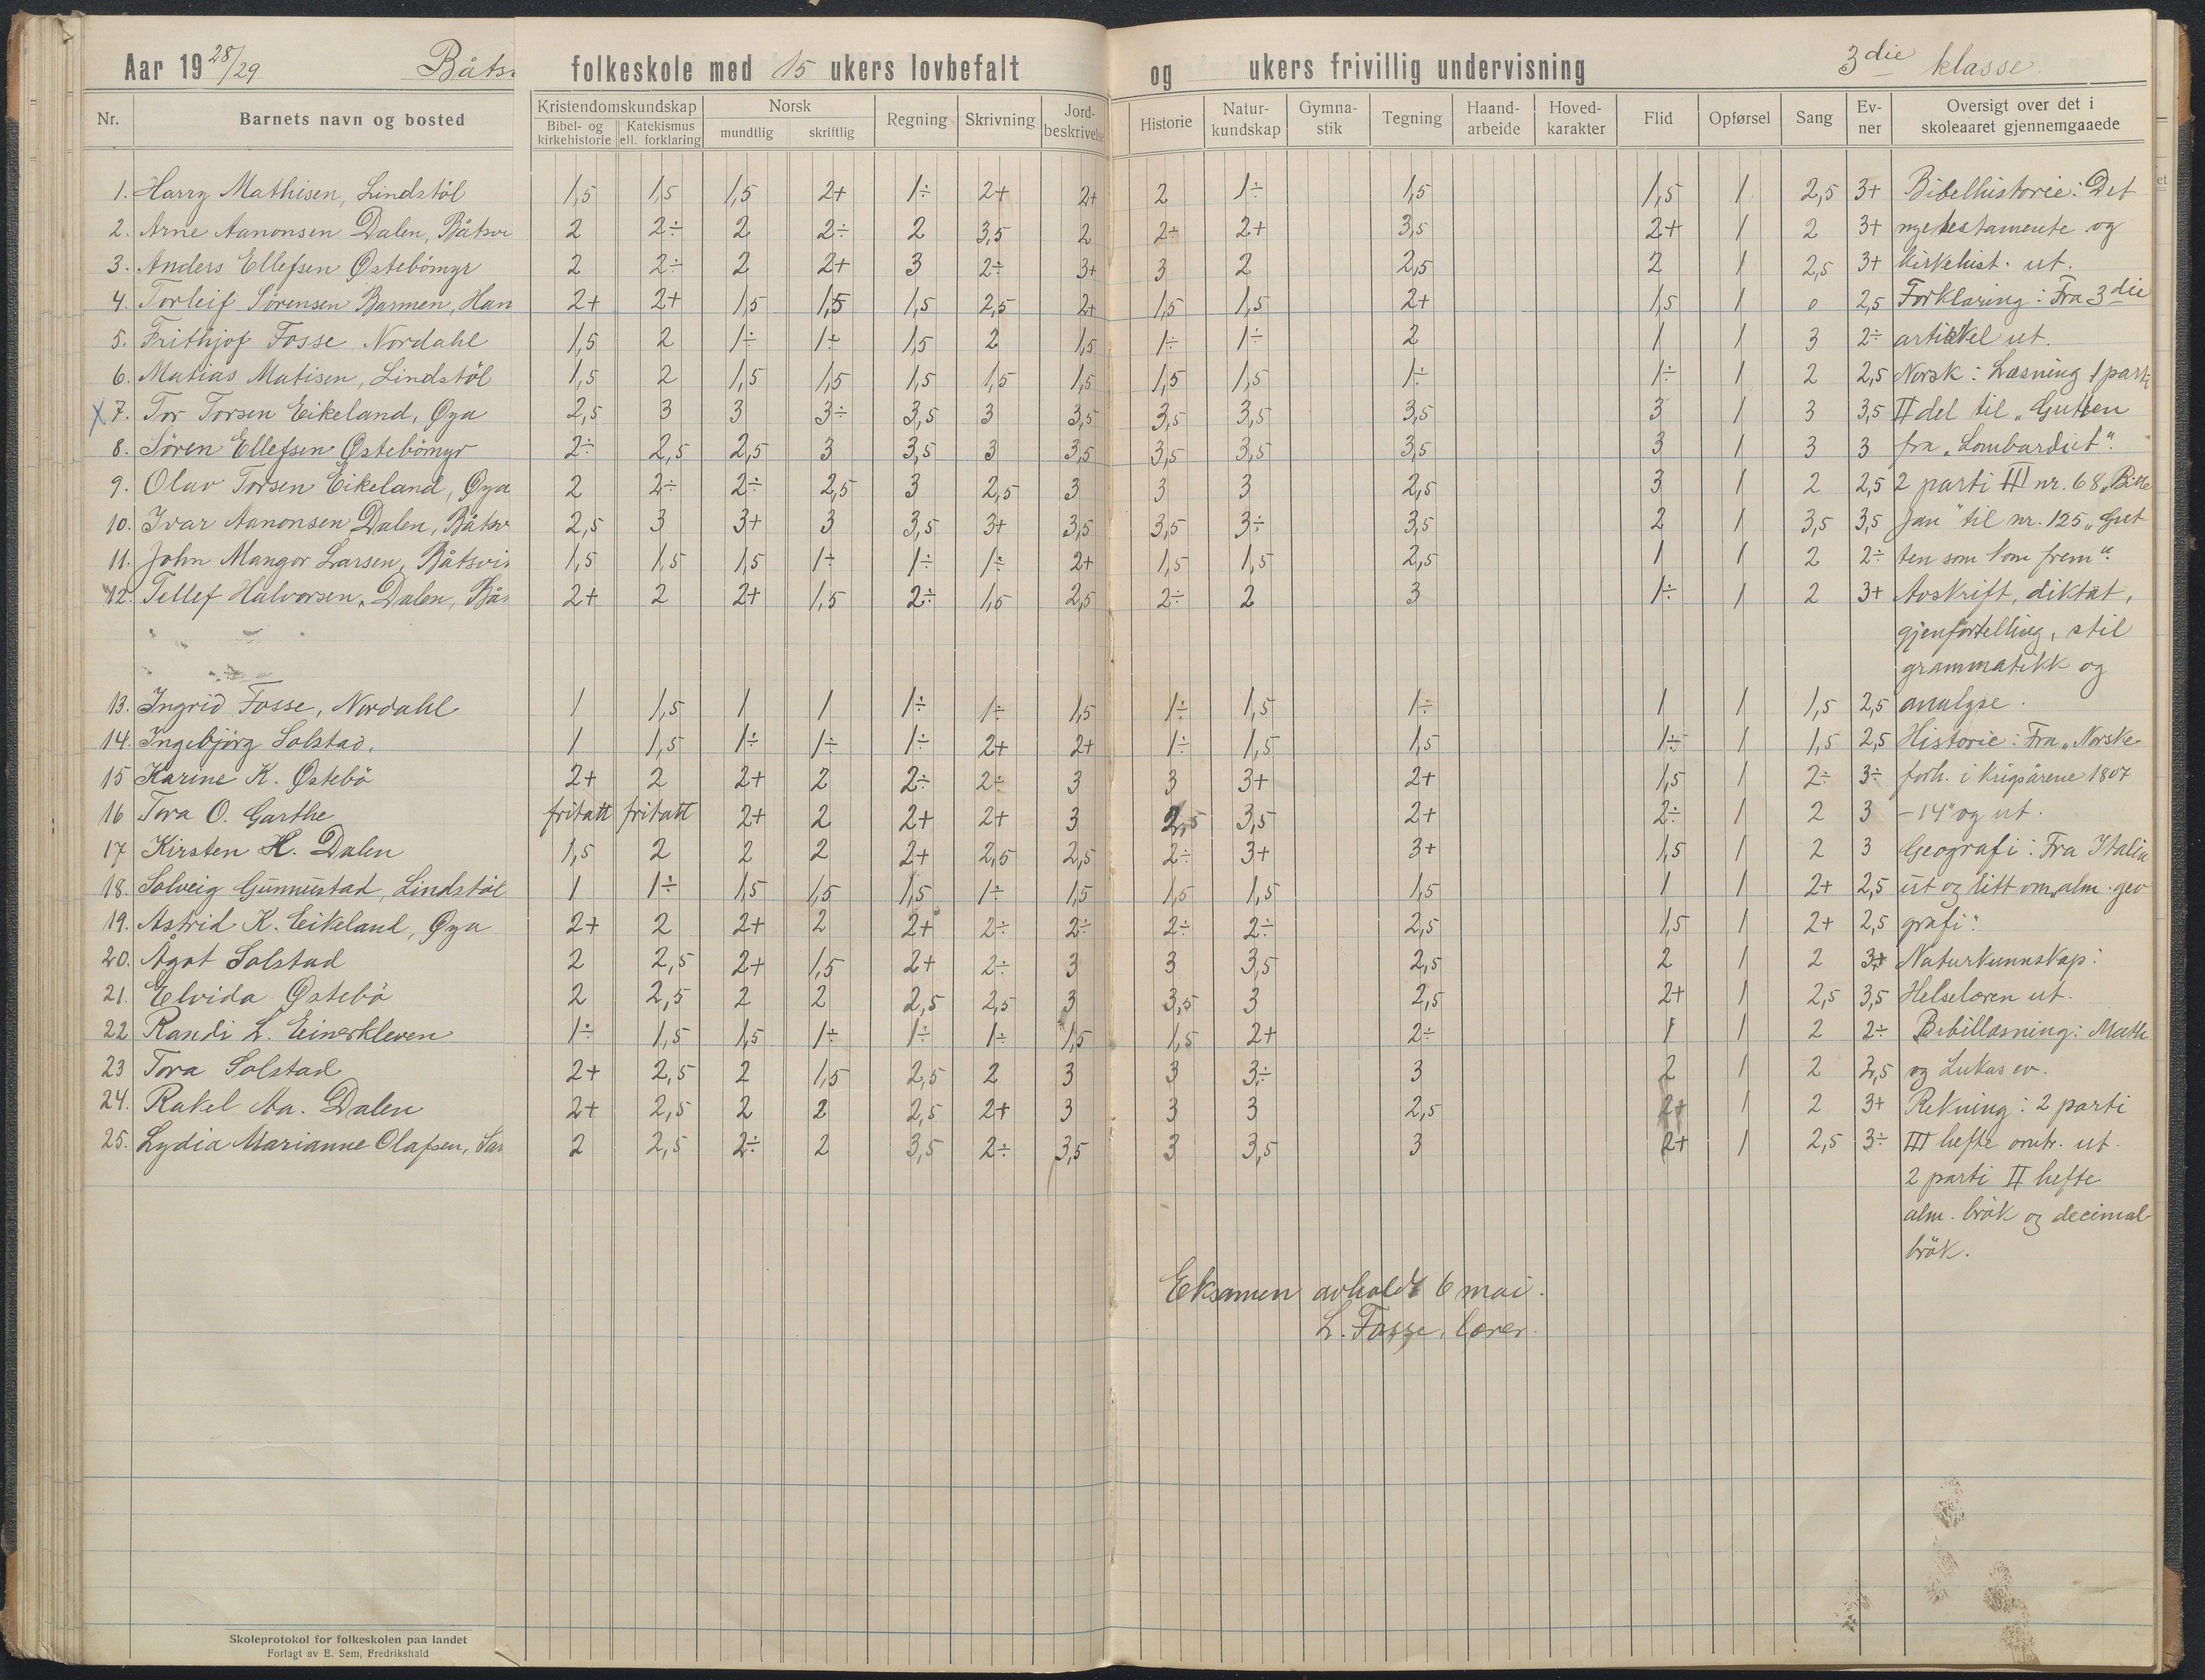 Aar 19 28/29 Båts folkeskole med 15 ukers lovbefalt og ukers frivillig undervisning 3die klasse.
Nr. Barnets navn og bosted Kristendomskundskap Bibel- og kirkehistorie Katekismus ell. forklaring Norsk mundtlig skriftlig Regning Skrivning Jord-beskrivelse Historie Natur-kundskap Gymna-stik Tegning Haand-arbeide Hoved-karakter Flid Opførsel Sang Ev-ner Oversigt over det i skoleaaret gjennemgaaede
1. Harry Mathisen, Lindstöl 1,5 1,5 1,5 2+ 1÷ 2+ 2+ 2 1÷ 1,5 1,5 1 2,5 3+ Bibelhistorie: Det
2. Arne Aanonsen Dalen, Båtsvi 2 2÷ 2 2÷ 2 3,5 2 2÷ 2+ 3,5 2+ 1 2 3+ nye testamente og
3. Anders Ellefsen Østebömyr 2 2÷ 2 2+ 3 2÷ 3+ 3 2 2,5 2 1 2,5 3+ kirkehist. ut.
4. Torleif Sörensen Barmen, Han 2+ 2+ 1,5 1,5 1,5 2,5 2+ 1,5 1,5 2+ 1,5 1 0 2,5 Forklaring: Fra 3die
5. Frithjof Fosse Nordahl 1,5 2 1÷ 1÷ 1,5 2 1,5 1÷ 1÷ 2 1 1 3 2÷ artikkel ut.
6. Matias Matisen, Lindstöl 1,5 2 1,5 1,5 1,5 1,5 1,5 1,5 1,5 1÷ 1÷ 1 2 2,5 Norsk: Læsning 1 parti
x 7. Tor Torsen Eikeland, Øya 2,5 3 3 3÷ 3,5 3 3,5 3,5 3,5 3,5 3 1 3 3,5 II del til „Gutten
8. Sören Ellefsen Østebömyr 2÷ 2,5 2,5 3 3,5 3 3,5 3,5 3,5 3,5 3 1 3 3 fra „Lombardiet“.
9. Olav Torsen Eikeland, Øya 2 2÷ 2÷ 2,5 3 2,5 3 3 3 2,5 3 1 2 2,5 2 parti III nr. 68 „Bitte
10. Ivar Aanonsen Dalen, Båtsv 2,5 3 3+ 3 3,5 3+ 3,5 3,5 3÷ 3,5 2 1 3,5 3,5 Jan“ til nr. 125 „Gut-
11. John Mangor Larsen, Båtsvi 1,5 1,5 1,5 1÷ 1÷ 1÷ 2+ 1,5 1,5 2,5 1 1 2 2÷ ten som kom frem“.
12. Tellef Halvorsen Dalen, Bå 2+ 2 2+ 1,5 2÷ 1,5 2,5 2÷ 2 3 1÷ 1 2 3+ Avskrift, diktat,
gjenfortelling, stil
grammatikk og
13. Ingrid Fosse, Nordahl 1 1,5 1 1 1÷ 1÷ 1,5 1÷ 1,5 1÷ 1 1 1,5 2,5 analyse.
14. Ingebjörg Solstad. 1 1,5 1÷ 1÷ 1÷ 2+ 2+ 1÷ 1,5 1,5 1÷ 1 1,5 2,5 Historie: Fra „Norske
15 Karine K. Østebö 2+ 2 2+ 2 2÷ 2÷ 3 3 3+ 2+ 1,5 1 2÷ 3÷ forh. i krigsårene 1807
16 Tora O. Garthe fritatt fritatt 2+ 2 2+ 2+ 3 2,5 3,5 2+ 2÷ 1 2 3 -14“ og ut.
17 Kirsten H. Dalen 1,5 2 2 2 2+ 2,5 2,5 2÷ 3+ 3+ 1,5 1 2 3 Geografi: Fra Italia
18. Solveig Gunnustad, Lindstöl 1 1÷ 1,5 1,5 1,5 1÷ 1,5 1,5 1,5 1,5 1 1 2+ 2,5 ut og litt om „alm. geo-
19. Astrid K. Eikeland, Øya 2+ 2 2+ 2 2+ 2÷ 2÷ 2÷ 2÷ 2,5 1,5 1 2+ 2,5 grafi“.
20. Ågot Solstad 2 2,5 2+ 1,5 2+ 2÷ 3 3 3,5 2,5 2 1 2 3+ Naturkunnskap:
21. Elvida Østebö 2 2,5 2 2 2,5 2,5 3 3,5 3 2,5 2+ 1 2,5 3,5 Helselæren ut.
22 Randi L. Einerkleven 1÷ 1,5 1,5 1÷ 1÷ 1÷ 1,5 1,5 2+ 2÷ 1 1 2 2÷ Bibillæsning: Math
23 Tora Solstad 2+ 2,5 2 1,5 2,5 2 3 3 3÷ 3 2 1 2 2,5 og Lukas ev.
24. Rakel Aa. Dalen 2+ 2,5 2 2 2,5 2+ 3 3 3 2,5 2+ 1 2 3+ Rekning: 2 parti
25. Lydia Marianne Olafsen, San 2 2,5 2÷ 2 3,5 2÷ 3,5 3 3,5 3 2+ 1 2,5 3÷ III hefte omtr. ut.
2 parti II hefte
alm. brök og decimal-
brök.
Eksamen avholdt 6 mai.
L. Fosse, lærer.
Skoleprotokol for folkeskolen paa landet
Forlagt av E. Sem, Fredrikshald